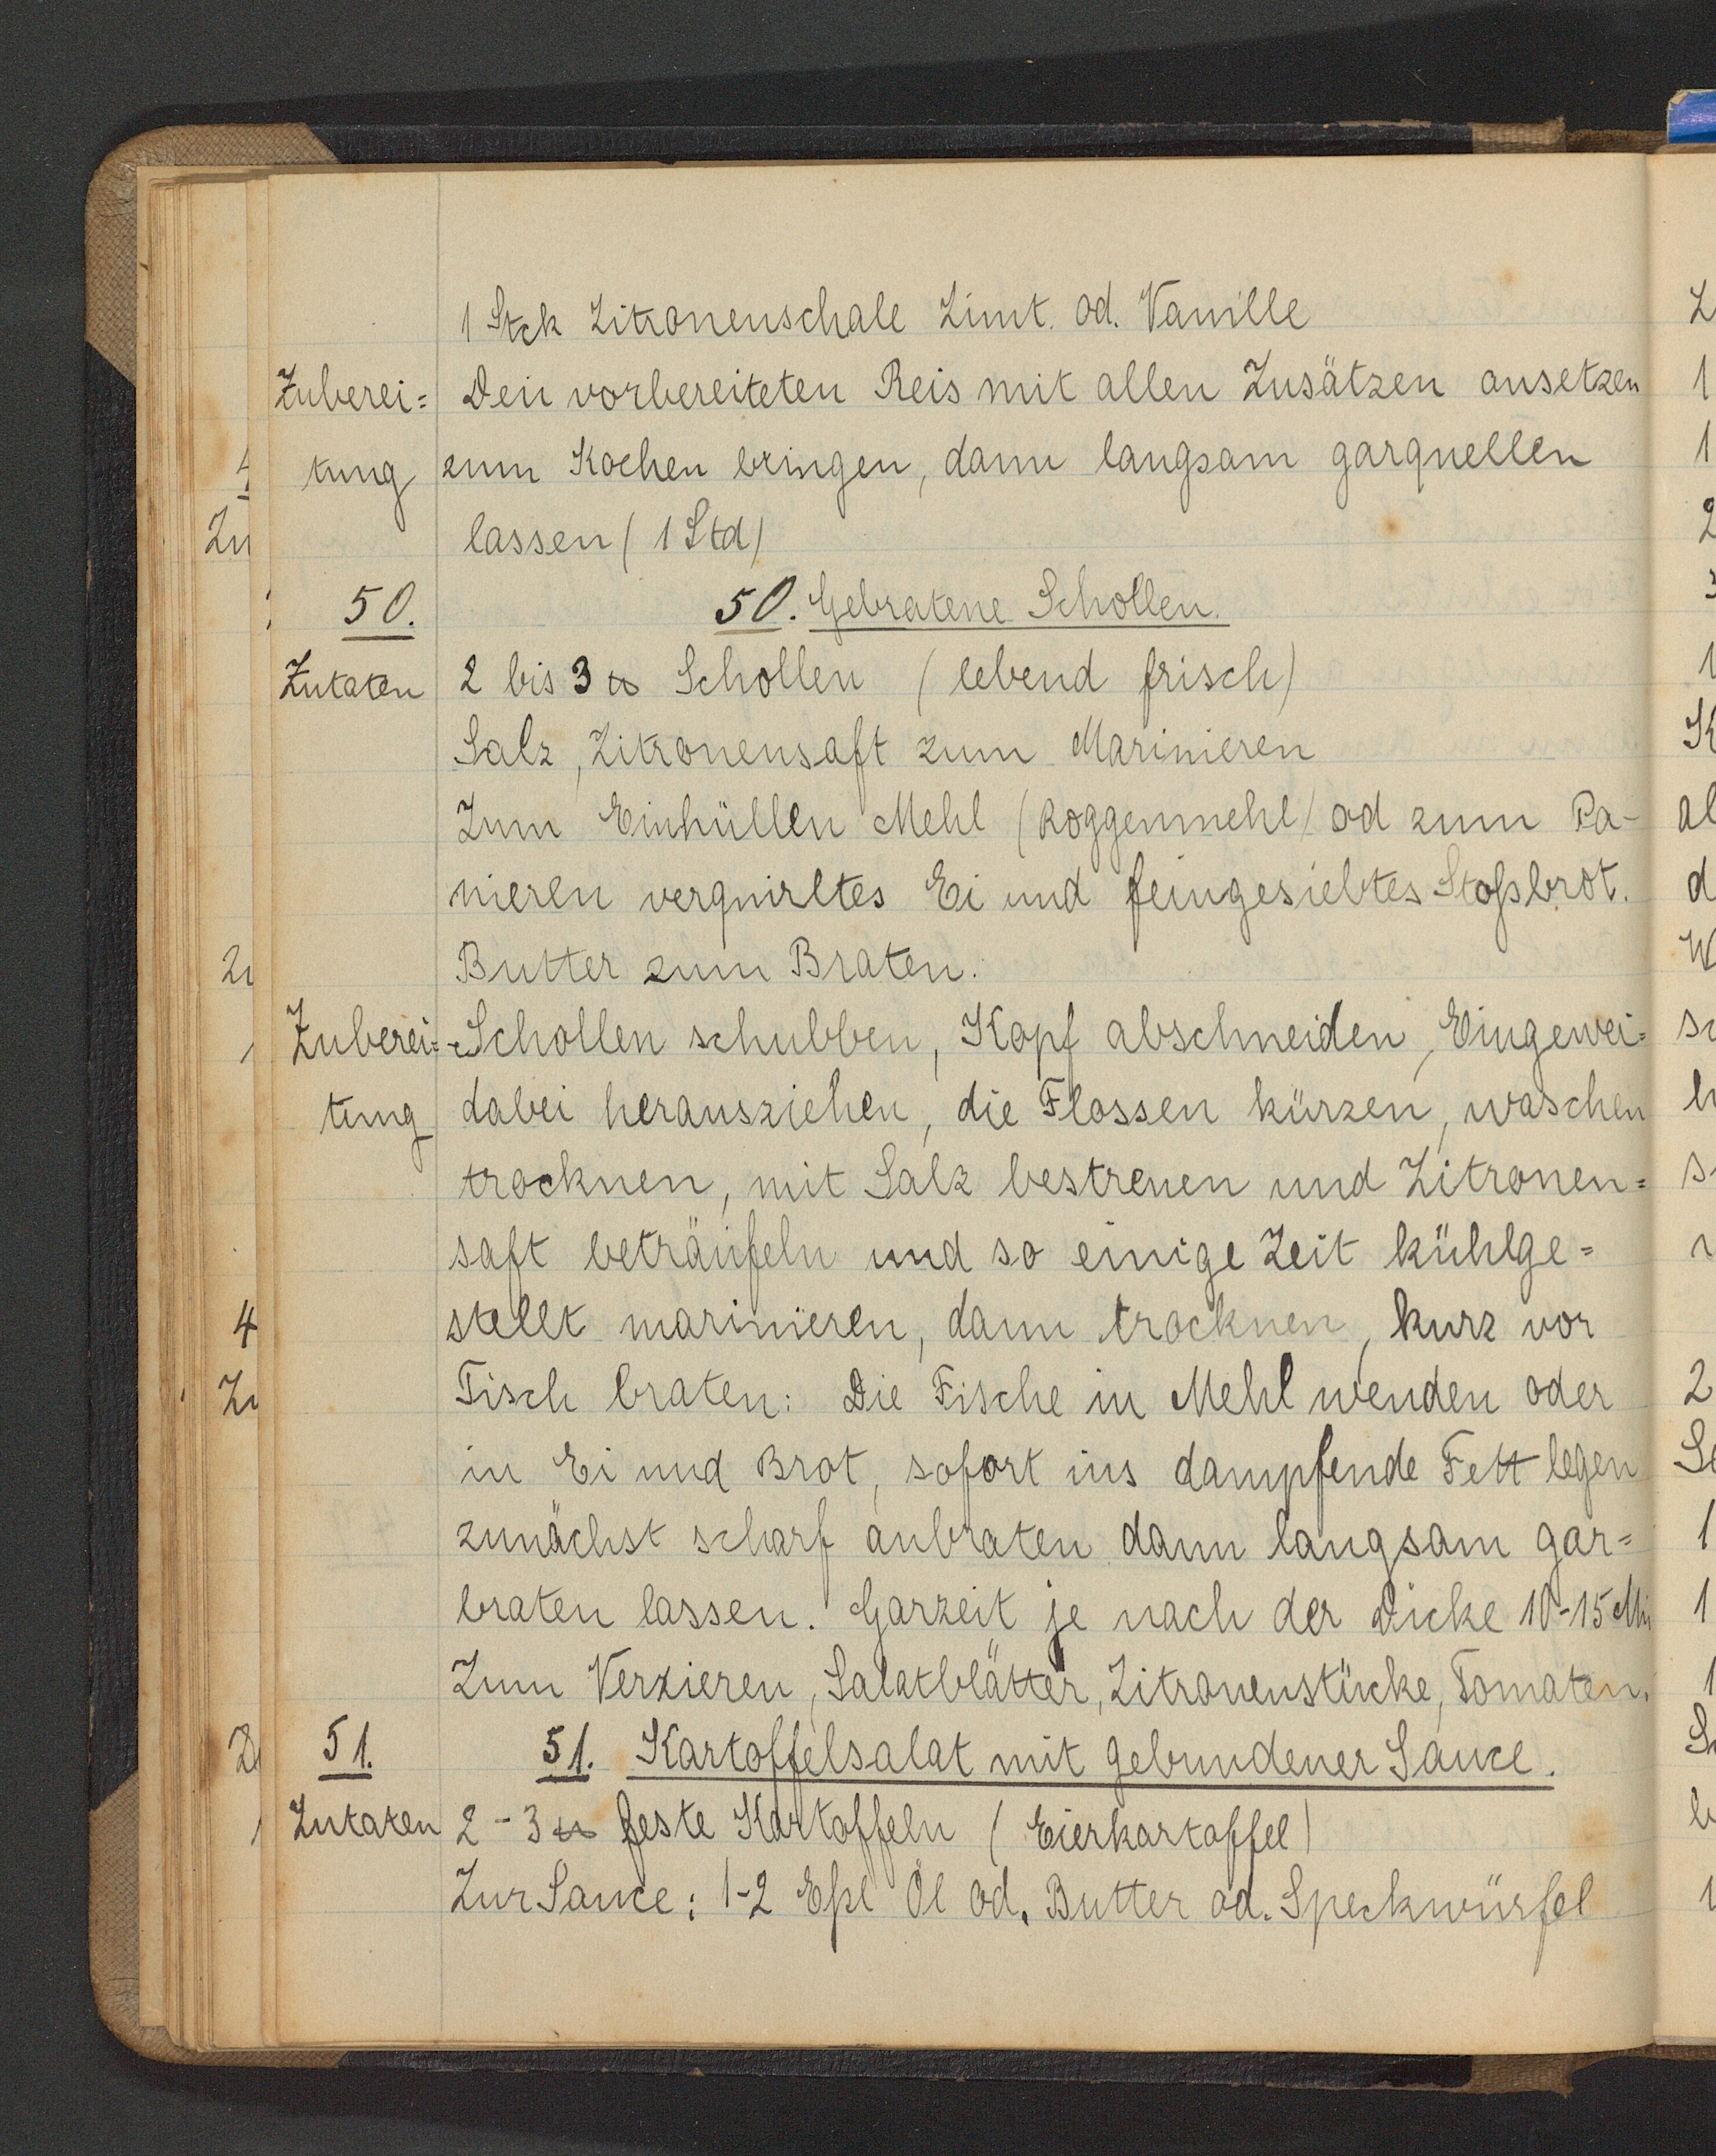 1 Stck Zitronenschale Zimt. od. Vanille
Zuberei= Den vorbereiteten Reis mit allen Zusätzen ansetzen
tung zum Kochen bringen, dann langsam garquellen
lassen (1 Std)
50. 50. Gebratene Schollen.
Zutaten 2 bis 3 ℔ Schollen (lebend frisch)
Salz, Zitronensaft zum Marinieren
Zum Einhüllen Mehl (Roggenmehl) od zum Pa-
nieren verquirltes Ei und feingesiebtes Stoßbrot.
Butter zum Braten.
Zuberei= Schollen schubben, Kopf abschneiden, Eingewei=
tung dabei herausziehen, die Flossen kürzen, waschen
trocknen, mit Salz bestreuen und Zitronen=
saft beträufeln und so einige Zeit kühlge=
stellt marinieren, dann trocknen, kurz vor
Tisch braten: Die Fische in Mehl wenden oder
in Ei und Brot, sofort ins dampfende Fett legen
zunächst scharf anbraten dann langsam gar=
braten lassen. Garzeit je nach der Dicke 10-15 Mi
Zum Verzieren, Salatblätter, Zitronenstücke, Tomaten.
51. 51. Kartoffelsalat mit gebundener Sauce.
Zutaten 2-3 ℔ feste Kartoffeln (Eierkartoffel)
Zur Sauce: 1-2 Eßl Öl od. Butter od. Speckwürfel